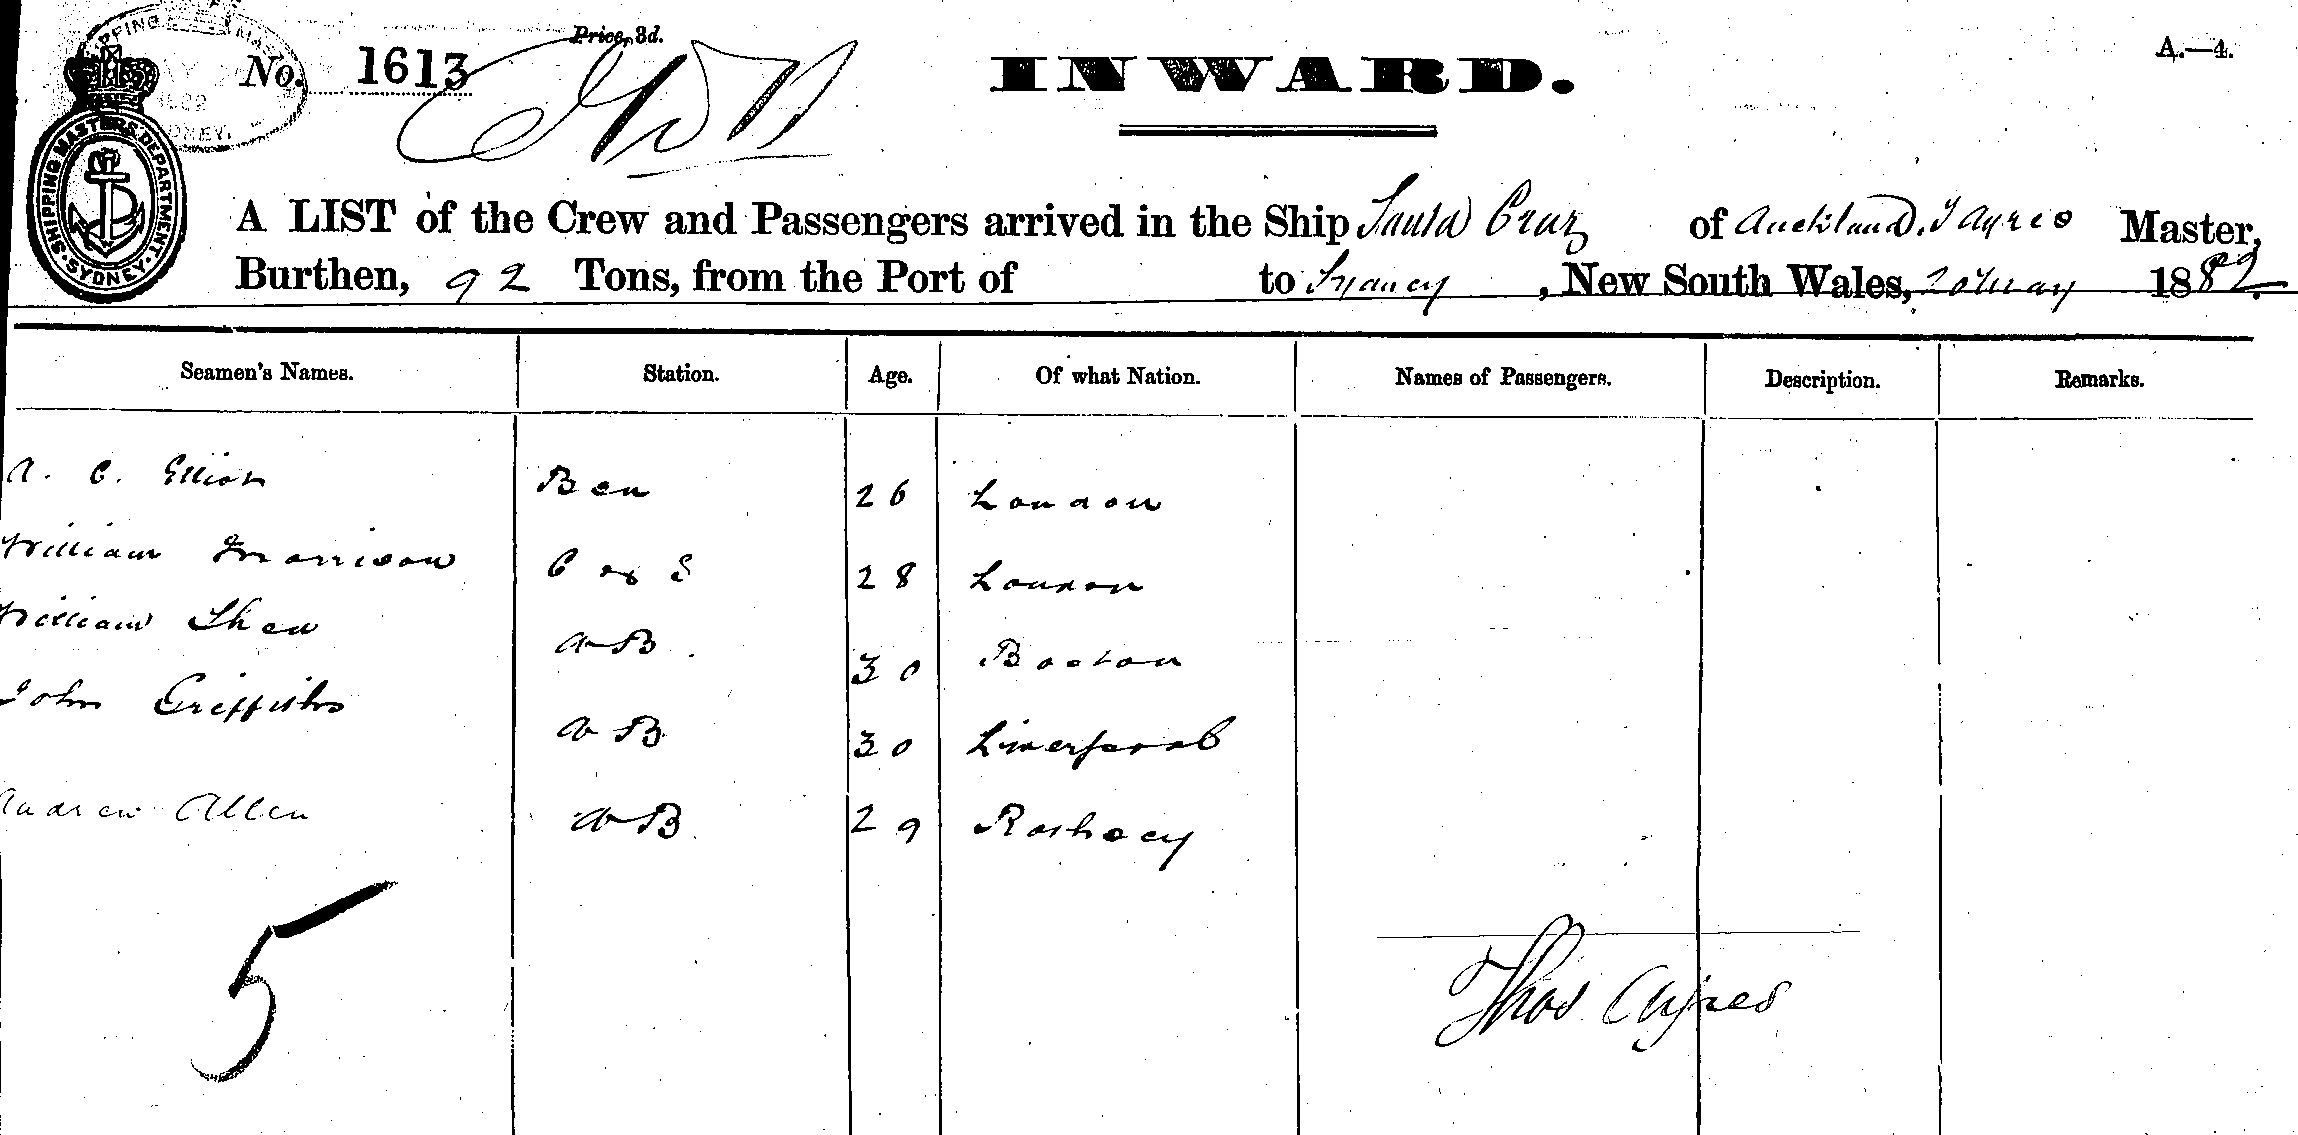 No. 1613
Price, 3d.
INWARD.
A.—4.
SHIPPING MASTERS DEPARTMENT SYDNEY
A LIST of the Crew and Passengers arrived in the Ship Santa Cruz of Auckland. T Ayres Master,
Burthen, 92 Tons, from the Port of to Sydney, New South Wales, 20 May 1882.
Seamen's Names. Station. Age. Of what Nation. Names of Passengers. Description. Remarks.
A. C. Elliot 26 London
William Morrison C & S 28 London
William Shea AB 30 Boston
John Griffiths AB 30 Liverpool
Andrew Allen AB 29 Rothsey
5
Thos Ayres